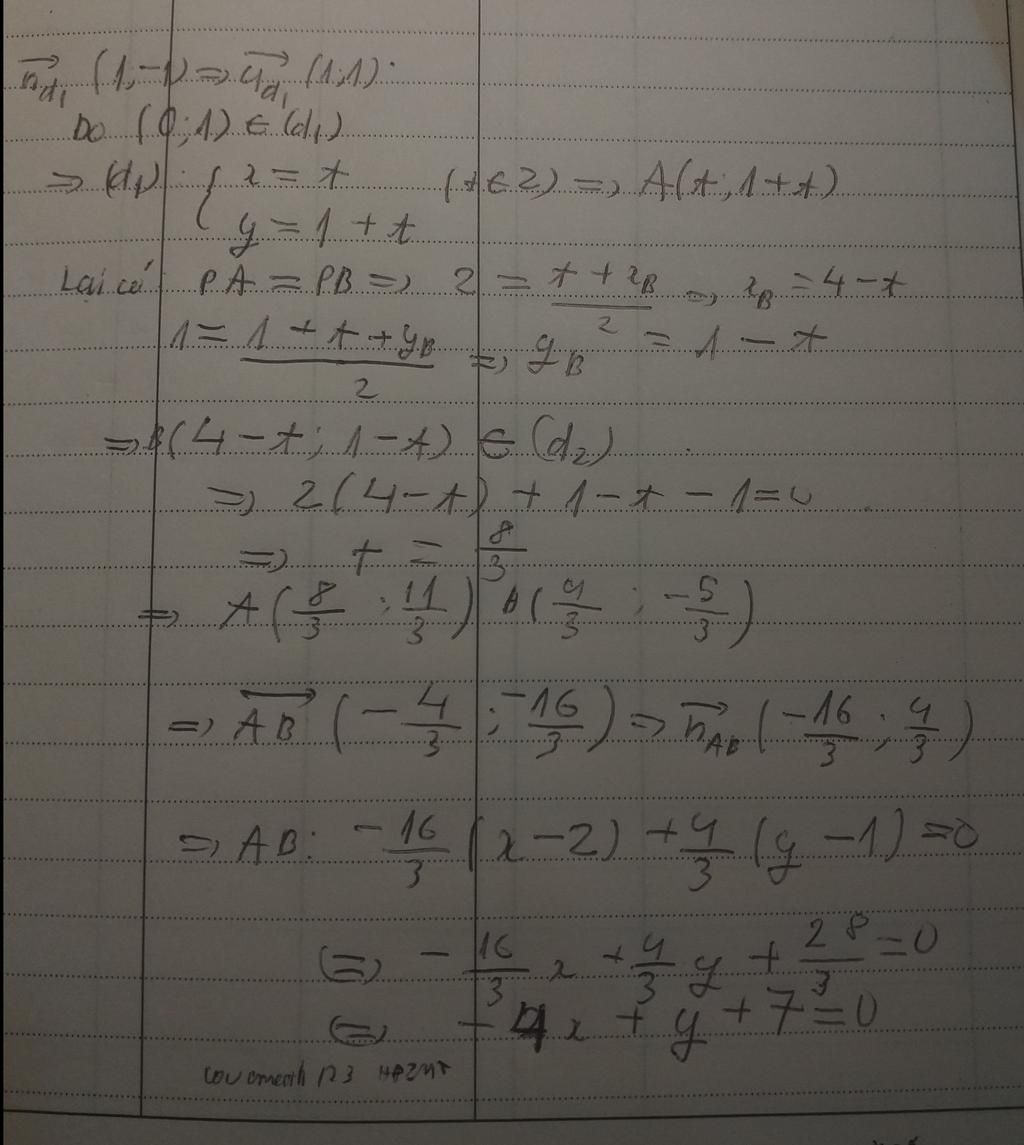 n_d₁→ (1;-1) => u_d₁→ (1;1).
Do (0;1) ∈ (d₁)
=> (d₁): { x = t (t ∈ Z) => A(t; 1+t)
y = 1 + t
Lại có PA = PB => 2 = (t + x_B)/2 => x_B = 4 - t
1 = (1 + t + y_B)/2 => y_B = 1 - t
=> B(4 - t; 1 - t) ∈ (d₂)
=> 2(4 - t) + 1 - t - 1 = 0
=> t = 8/3
=> A(8/3; 11/3) B(4/3; -5/3)
=> AB→ (-4/3; -16/3) => n_AB→ (-16/3; 4/3)
=> AB: -16/3 (x - 2) + 4/3 (y - 1) = 0
<=> -16/3 x + 4/3 y + 28/3 = 0
<=> -4x + y + 7 = 0